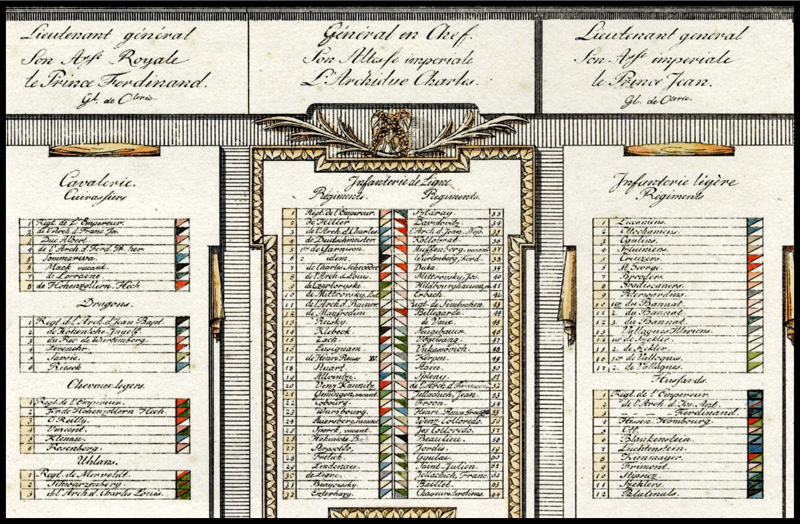 Lieutenant général
Son Alse Royale
le Prince Ferdinand.
Gl. de Cvrie.
Général en Chef.
Son Altesse imperiale
L'Archiduc Charles.
Lieutenant général
Son Alse imperiale
le Prince Jean.
Gl. de Cvrie.
Cavalerie.
Cuirassiers
1 Regt. de L'Empereur.
2 de l'Arch. Franc Jos.
3 Duc Albert
4 de l'Arch. d. Ferd.
5 Sommariva.
6 Mack vacant.
7 de Lorraine
8 de Hohenzollern Hech
Dragons.
1 Regt. d l'Arch. d. Jean Bapt
2 de Hohenlohe Ingelf.
3 du Roi de Würtemberg
4 Levenehr.
5 Savoie.
6 Riesch
Chevauxlegers.
1 Regt. de l'Empereur.
2 Pr. de Hohenzollern Hech
3 O'Reilly.
4 Vincent.
5 Klenau.
6 Rosenberg.
Uhlans.
1 Regt. de Merveldt.
2 Schwarzenberg.
3 de l'Arch d. Charles Louis.
Infanterie de Ligne.
Régiments. Régiments.
1 Regt. de l'Empereur. Sztaray 33
2 de Hiller Davidovits. 34
3 de l'Arch d. Charles l'Arch d. Jean Nep. 35
4 de Deutschmeister Kollowrat 36
5 1r de Garnison. Auffenberg, vacant 37
6 2 idem. Würtemberg, Ferd. 38
7 de Charles Schröeder Duka 39
8 de l'Arch d. Louis. Mittrowsky, Jos. 40
9 de Czartorysky Hildburghausen, 41
10 de Mittrowsky, Erbach 42
11 de l'Arch d. Rainer Regt. de Simbschen 43
12 de Manfredini Bellegarde 44
13 Reisky de Vaux. 45
14 Klebeck Neugebauer 46
15 Zach Vogelsang. 47
16 Lusignan Vukassovich. 48
17 de Henri Reuss XV. Kerpen. 49
18 Stuart Stain. 50
19 Allvintzi Spleny. 51
20 Venz. Kaunitz de l'Arch d. Francois 52
21 Gemingen, vacant Jellachich, Jean. 53
22 Cobourg Froon. 54
23 Wurzbourg. Henri Reuss 55
24 Auersberg, vacant Venz. Colloredo. 56
25 Spork, vacant Jos. Colloredo 57
26 Hohenlohe B. Beaulieu. 58
27 Strasoldo. Jordis. 59
28 Frelich Gyulai 60
29 Lindenau Saint-Julien. 61
30 de Ligne. Jellachich, Franc. 62
31 Benyovsky Baillet. 63
32 Eszterhazy. Chasseurs tiroliens. 64
Infanterie légère
Régiments
1 Liccaniens.
2 Ottochaniens.
3 Ogulins.
4 Szluiniens.
5 Creuzers.
6 St. Georgs.
7 Brooders.
8 Gradiscaners.
9 Peterwardens.
10 du Bannat.
11 du Bannat.
12 du Bannat
13 Vallaques Illiriens.
14 1r de Szekler.
15 2 de Szekler.
16 1r de Vallaques.
17 2. de Vallaques.
Husards.
1 Regt. de l'Empereur
2 de l'Arch d. Jos. Ant.
3 Ferdinand.
4 Hessen Hombourg
5 Ott.
6 Blankenstein.
7 Lichtenstein
8 Kienmayer.
9 Frimont.
10 Stipsicz.
11 Szeklers.
12 Palatinals.